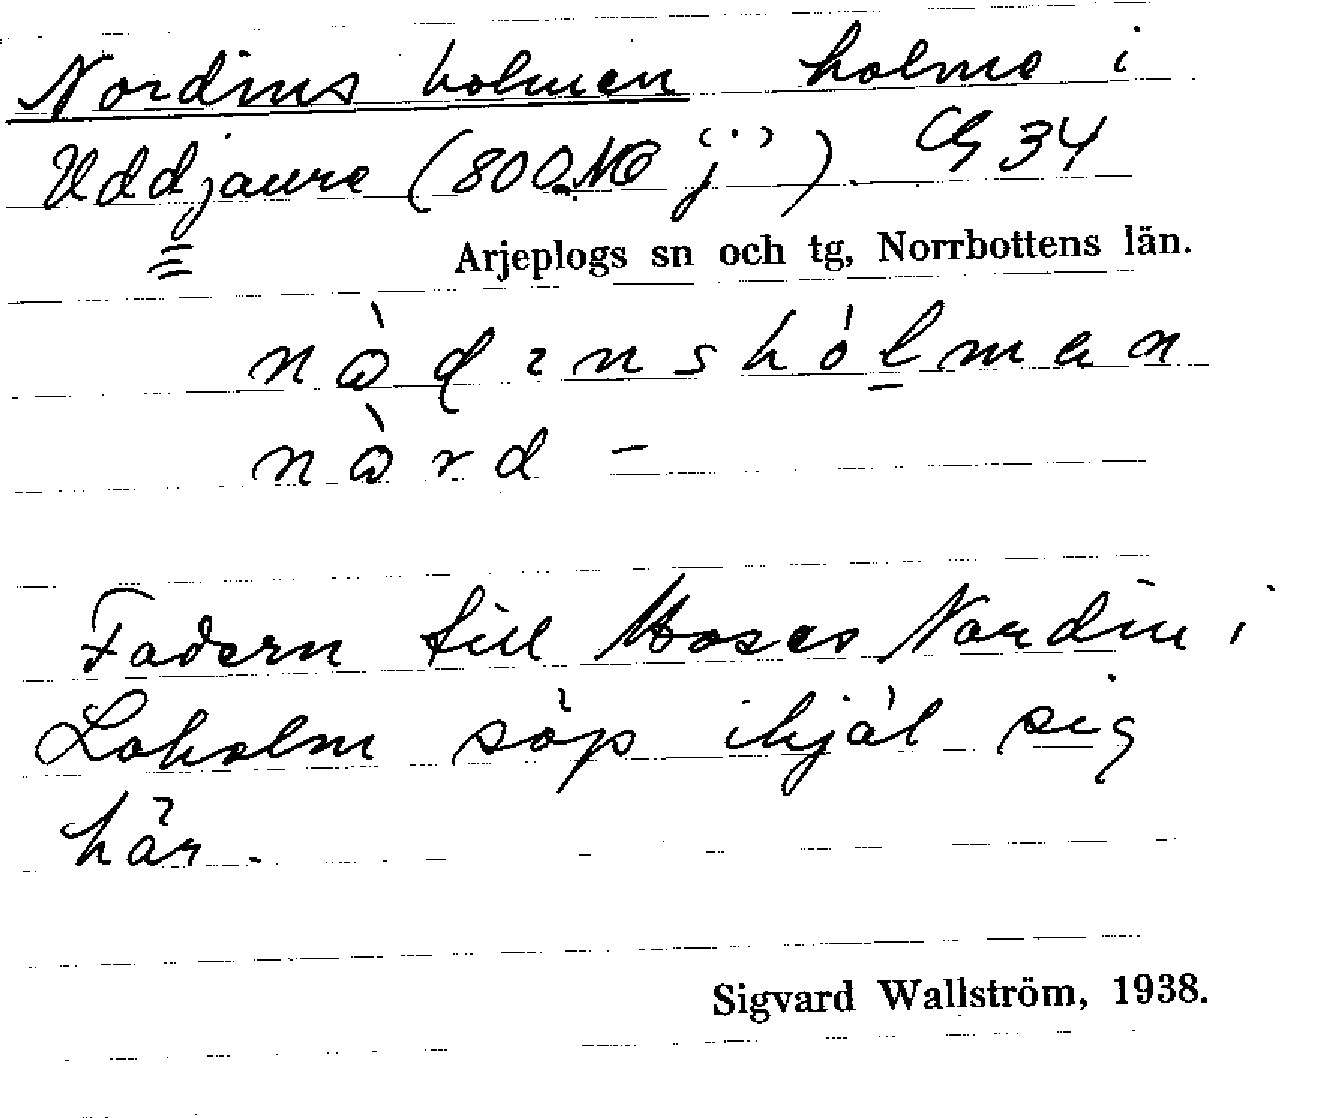 Nordins holmen holme i
Uddjaure (800 NO "j"). CG 34
Arjeplogs sn och tg, Norrbottens län.
nòdinshólman
nòrd -
Fadern till Moses Nordin i
Loholm söp ihjäl sig
här.
Sigvard Wallström, 1938.